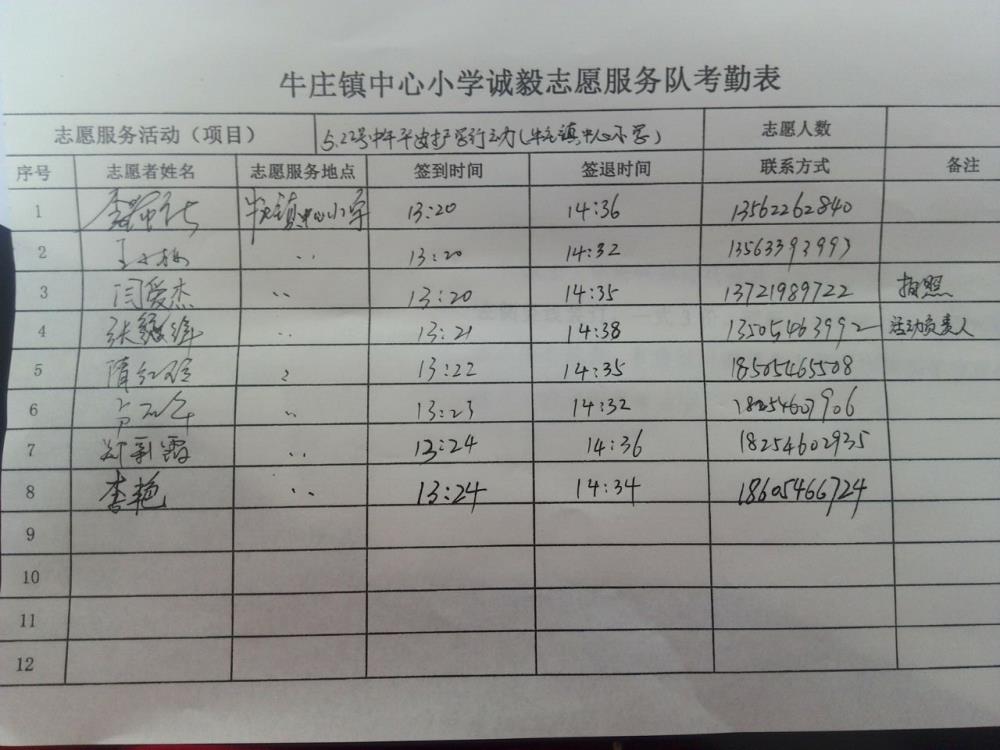 牛庄镇中心小学诚毅志愿服务队考勤表
志愿服务活动（项目） 5.22号中午平安护学行动（牛庄镇中心小学） 志愿人数
序号 志愿者姓名 志愿服务地点 签到时间 签退时间 联系方式 备注
1 牛庄镇中心小学 13:20 14:36 13562262840
2 〃 13:20 14:32 13563393993
3 闫爱杰 〃 13:20 14:35 13721989722 拍照
4 〃 13:21 14:38 13505463992 活动负责人
5 隋红 〃 13:22 14:35 18505465508
6 〃 13:23 14:32 18254607906
7 郑彩霞 〃 13:24 14:36 18254602935
8 李艳 〃 13:24 14:34 18605466724
9
10
11
12